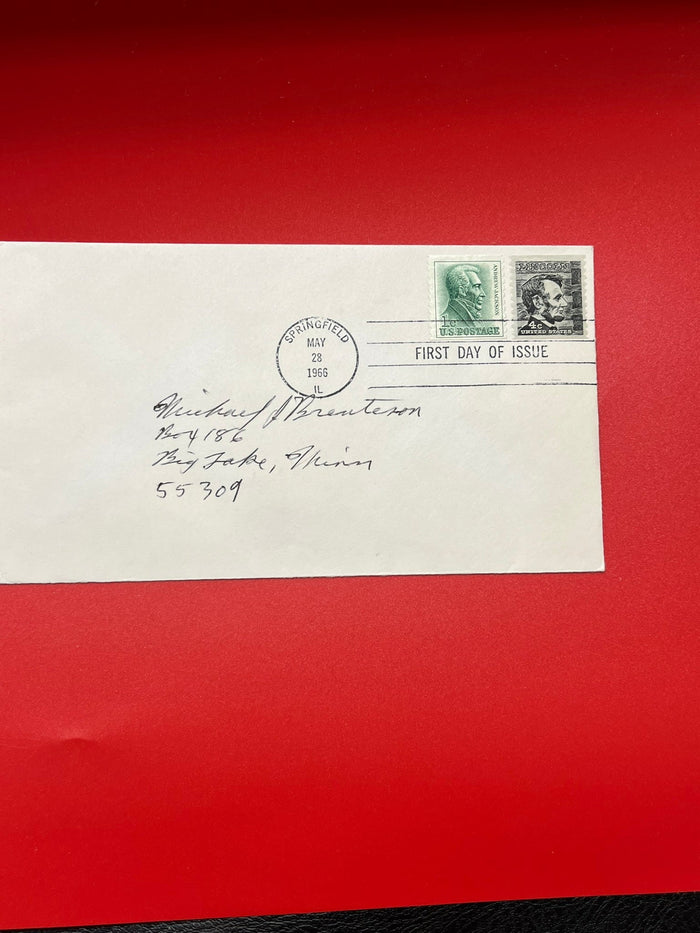 ANDREW JACKSON
1c
U.S. POSTAGE
LINCOLN
4c
UNITED STATES
SPRINGFIELD
MAY
28
1966
IL
FIRST DAY OF ISSUE
Michael J Brenteson
Box 186
Big Lake, Minn
55309